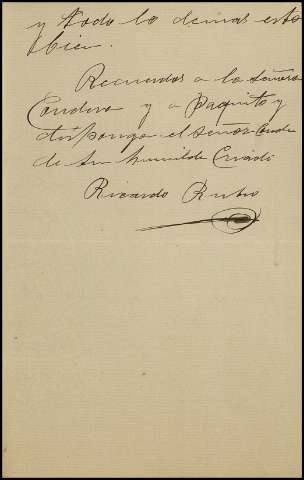 y todo lo demas esta
bien.
Recuerdos a la señora
Condesa y a Paquito y
disponga el señor Conde
de su humilde Criado
Ricardo Rubio